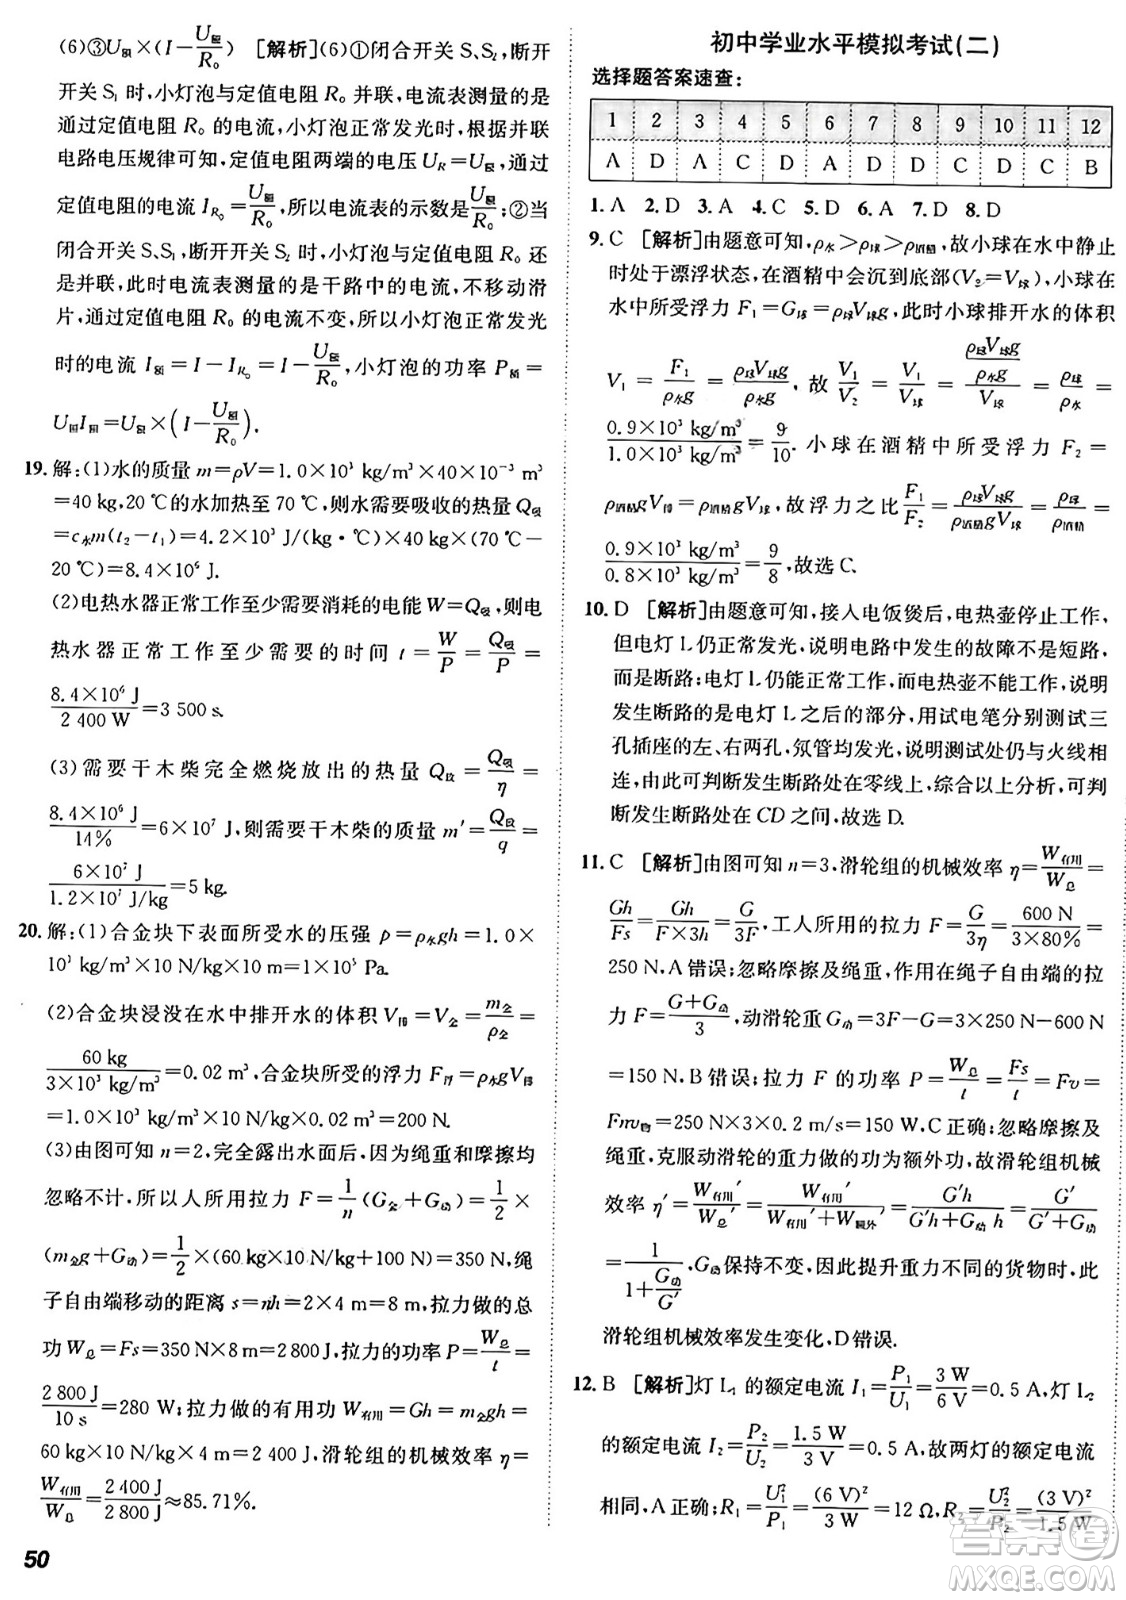 (6)③U额×(I−U额/R₀)　[解析](6)①闭合开关 S、S₂,断开
开关 S₁ 时,小灯泡与定值电阻 R₀ 并联,电流表测量的
是定值电阻 R₀ 的电流,小灯泡正常发光时,根据并联
电路电压规律可知,定值电阻两端的电压 U_R=U额,
定值电阻的电流 I_R₀=U额/R₀,所以电流表的示数是U额/R₀;②当
闭合开关 S、S₁,断开开关 S₂ 时,小灯泡与定值电阻 R₀
并联,此时电流表测量的是干路中的电流,不移动滑
片,通过定值电阻 R₀ 的电流不变,所以小灯泡正常发光
时的电流 I额=I−I_R₀=I−U额/R₀,小灯泡的功率 P额=
U额I额=U额×(I−U额/R₀).
19. 解:(1)水的质量 m=ρV=1.0×10³ kg/m³×40×10⁻³ m³
=40 kg,20 ℃的水加热至 70 ℃,则水需要吸收的热量 Q吸
=c水m(t₂−t₁)=4.2×10³ J/(kg·℃)×40 kg×(70 ℃−
20 ℃)=8.4×10⁶ J.
(2)电热水器正常工作至少需要消耗的电能 W=Q吸,则电
热水器正常工作至少需要的时间 t=W/P=Q吸/P=
8.4×10⁶ J/2 400 W=3 500 s.
(3)需要干木柴完全燃烧放出的热量 Q放=Q吸/η=
8.4×10⁶ J/14%=6×10⁷ J,则需要干木柴的质量 m′=Q放/q=
6×10⁷ J/1.2×10⁷ J/kg=5 kg.
20. 解:(1)合金块下表面所受水的压强 p=ρ水gh=1.0×
10³ kg/m³×10 N/kg×10 m=1×10⁵ Pa.
(2)合金块浸没在水中排开水的体积 V排=V金=m金/ρ金=
60 kg/3×10³ kg/m³=0.02 m³,合金块所受的浮力 F浮=ρ水gV排
=1.0×10³ kg/m³×10 N/kg×0.02 m³=200 N.
(3)由图可知 n=2,完全露出水面后,因为绳重和摩擦均
忽略不计,所以人所用拉力 F=1/n(G金+G动)=1/2×
(m金g+G动)=1/2×(60 kg×10 N/kg+100 N)=350 N,绳
子自由端移动的距离 s=nh=2×4 m=8 m,拉力做的总
功 W总=Fs=350 N×8 m=2 800 J,拉力的功率 P=W总/t=
2 800 J/10 s=280 W;拉力做的有用功 W有用=Gh=m金gh=
60 kg×10 N/kg×4 m=2 400 J,滑轮组的机械效率 η=
W有用/W总=2 400 J/2 800 J≈85.71%.
50
初中学业水平模拟考试(二)
选择题答案速查:
1 2 3 4 5 6 7 8 9 10 11 12
A D A C D A D D C D C B
1. A　2. D　3. A　4. C　5. D　6. A　7. D　8. D
9. C　[解析]由题意可知,ρ水>ρ球>ρ酒精,故小球在水中静止
时处于漂浮状态,在酒精中会沉到底部(V₂=V球),小球在
水中所受浮力 F₁=G球=ρ球V球g,此时小球排开水的体积
V₁=F₁/ρ水g=ρ球V球g/ρ水g,故V₁/V₂=V₁/V球=(ρ球V球g/ρ水g)/V球=ρ球/ρ水=
0.9×10³ kg/m³/1.0×10³ kg/m³=9/10.小球在酒精中所受浮力 F₂=
ρ酒精gV排=ρ酒精gV球,故浮力之比F₁/F₂=ρ球V球g/ρ酒精gV球=ρ球/ρ酒精=
0.9×10³ kg/m³/0.8×10³ kg/m³=9/8,故选 C.
10. D　[解析]由题意可知,接入电饭煲后,电热壶停止工作,
但电灯 L 仍正常发光,说明电路中发生的故障不是短路,
而是断路;电灯 L 仍能正常工作,而电热壶不能工作,说明
发生断路的是电灯 L 之后的部分,用试电笔分别测试三
孔插座的左、右两孔,氖管均发光,说明测试处仍与火线相
连,由此可判断发生断路处在零线上,综合以上分析,可判
断发生断路处在 CD 之间,故选 D.
11. C　[解析]由图可知 n=3,滑轮组的机械效率 η=W有用/W总=
Gh/Fs=Gh/F×3h=G/3F,工人所用的拉力 F=G/3η=600 N/3×80%=
250 N,A 错误;忽略摩擦及绳重,作用在绳子自由端的拉
力 F=G+G动/3,动滑轮重 G动=3F−G=3×250 N−600 N
=150 N,B 错误;拉力 F 的功率 P=W总/t=Fs/t=Fv=
Fnv物=250 N×3×0.2 m/s=150 W,C 正确;忽略摩擦及
绳重,克服动滑轮的重力做的功为额外功,故滑轮组机械
效率 η′=W有用′/W总′=W有用′/W有用′+W额外=G′h/G′h+G动h=G′/G′+G动
=1/(1+G动/G′),G动保持不变,因此提升重力不同的货物时,
滑轮组机械效率发生变化,D 错误.
12. B　[解析]灯 L₁ 的额定电流 I₁=P₁/U₁=3 W/6 V=0.5 A,灯 L₂
的额定电流 I₂=P₂/U₂=1.5 W/3 V=0.5 A,故两灯的额定电流
相同,A 正确;R₁=U₁²/P₁=(6 V)²/3 W=12 Ω,R₂=U₂²/P₂=(3 V)²/1.5 W